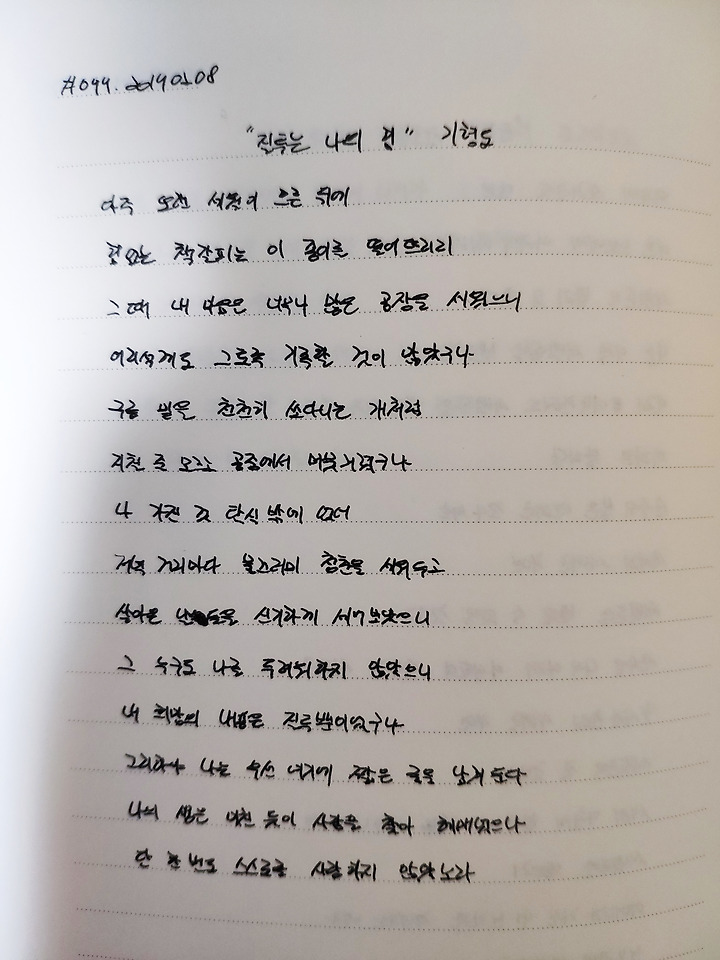 #099. 20190208
"질투는 나의 힘" 기형도
아주 오랜 세월이 흐른 뒤에
힘없는 책갈피는 이 종이를 떨어뜨리리
그때 내 마음은 너무나 많은 공장을 세웠으니
어리석게도 그토록 기록할 것이 많았구나
구름 밑을 천천히 쏘다니는 개처럼
지친 줄 모르고 공중에서 머뭇거렸구나
나 가진 것 탄식 밖에 없어
저녁 거리마다 물끄러미 청춘을 세워두고
살아온 날들을 신기하게 세어보았으니
그 누구도 나를 두려워하지 않았으니
내 희망의 내용은 질투뿐이었구나
그리하여 나는 우선 여기에 짧은 글을 남겨 둔다
나의 생은 미친 듯이 사랑을 찾아 헤매었으나
단 한 번도 스스로를 사랑하지 않았노라